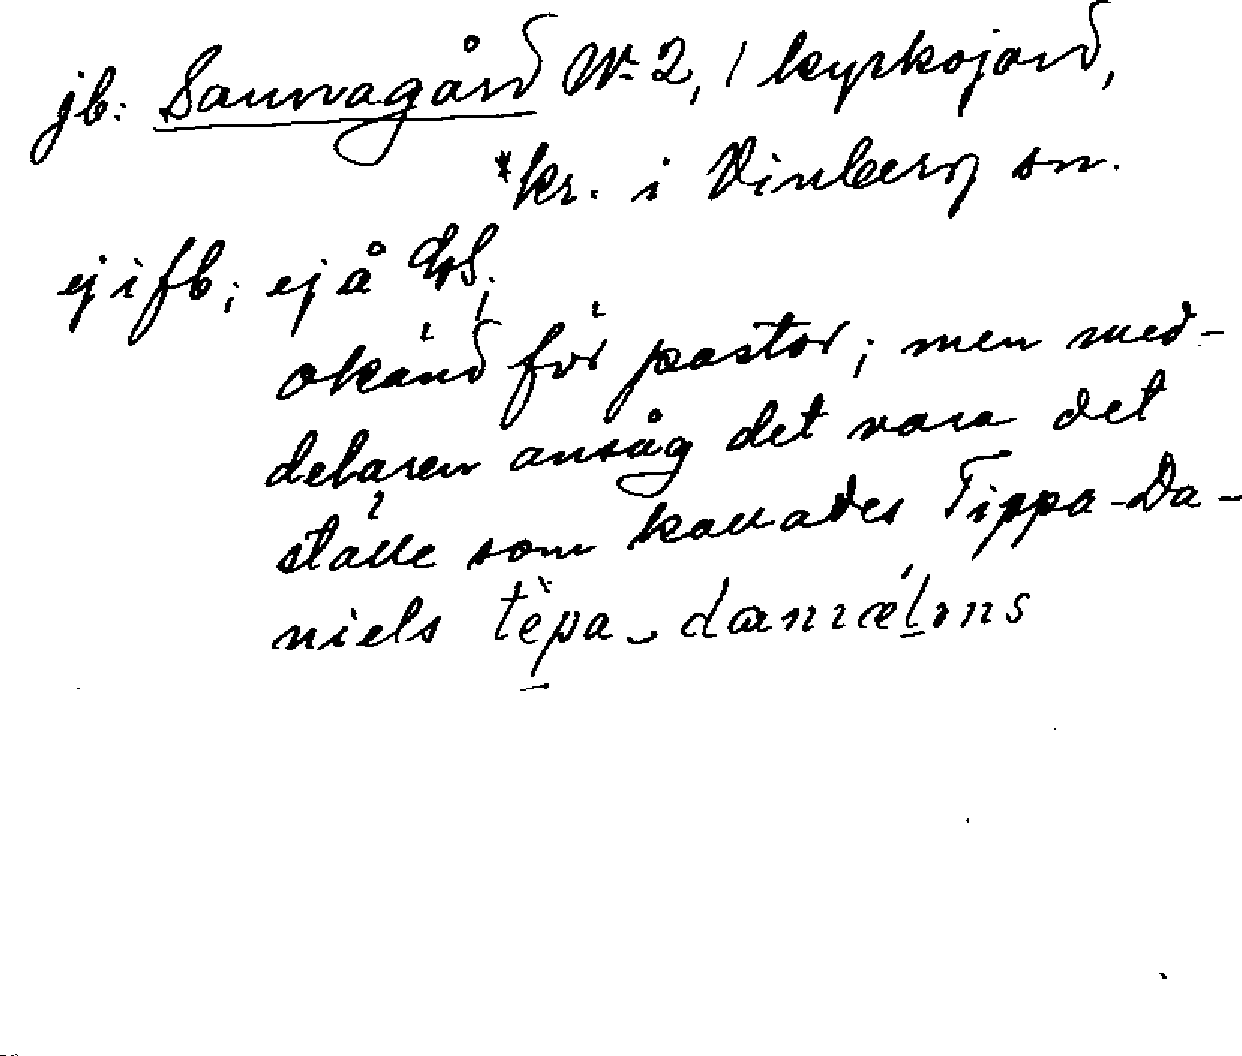 jb: Saunagård № 2, 1 kyrkojord,
*kr. i Vinberg sn.
ej i fb; ej å GS,
okänd för pastor; men med-
delaren ansåg det vara det
ställe som kallades Tippa-Da-
niels